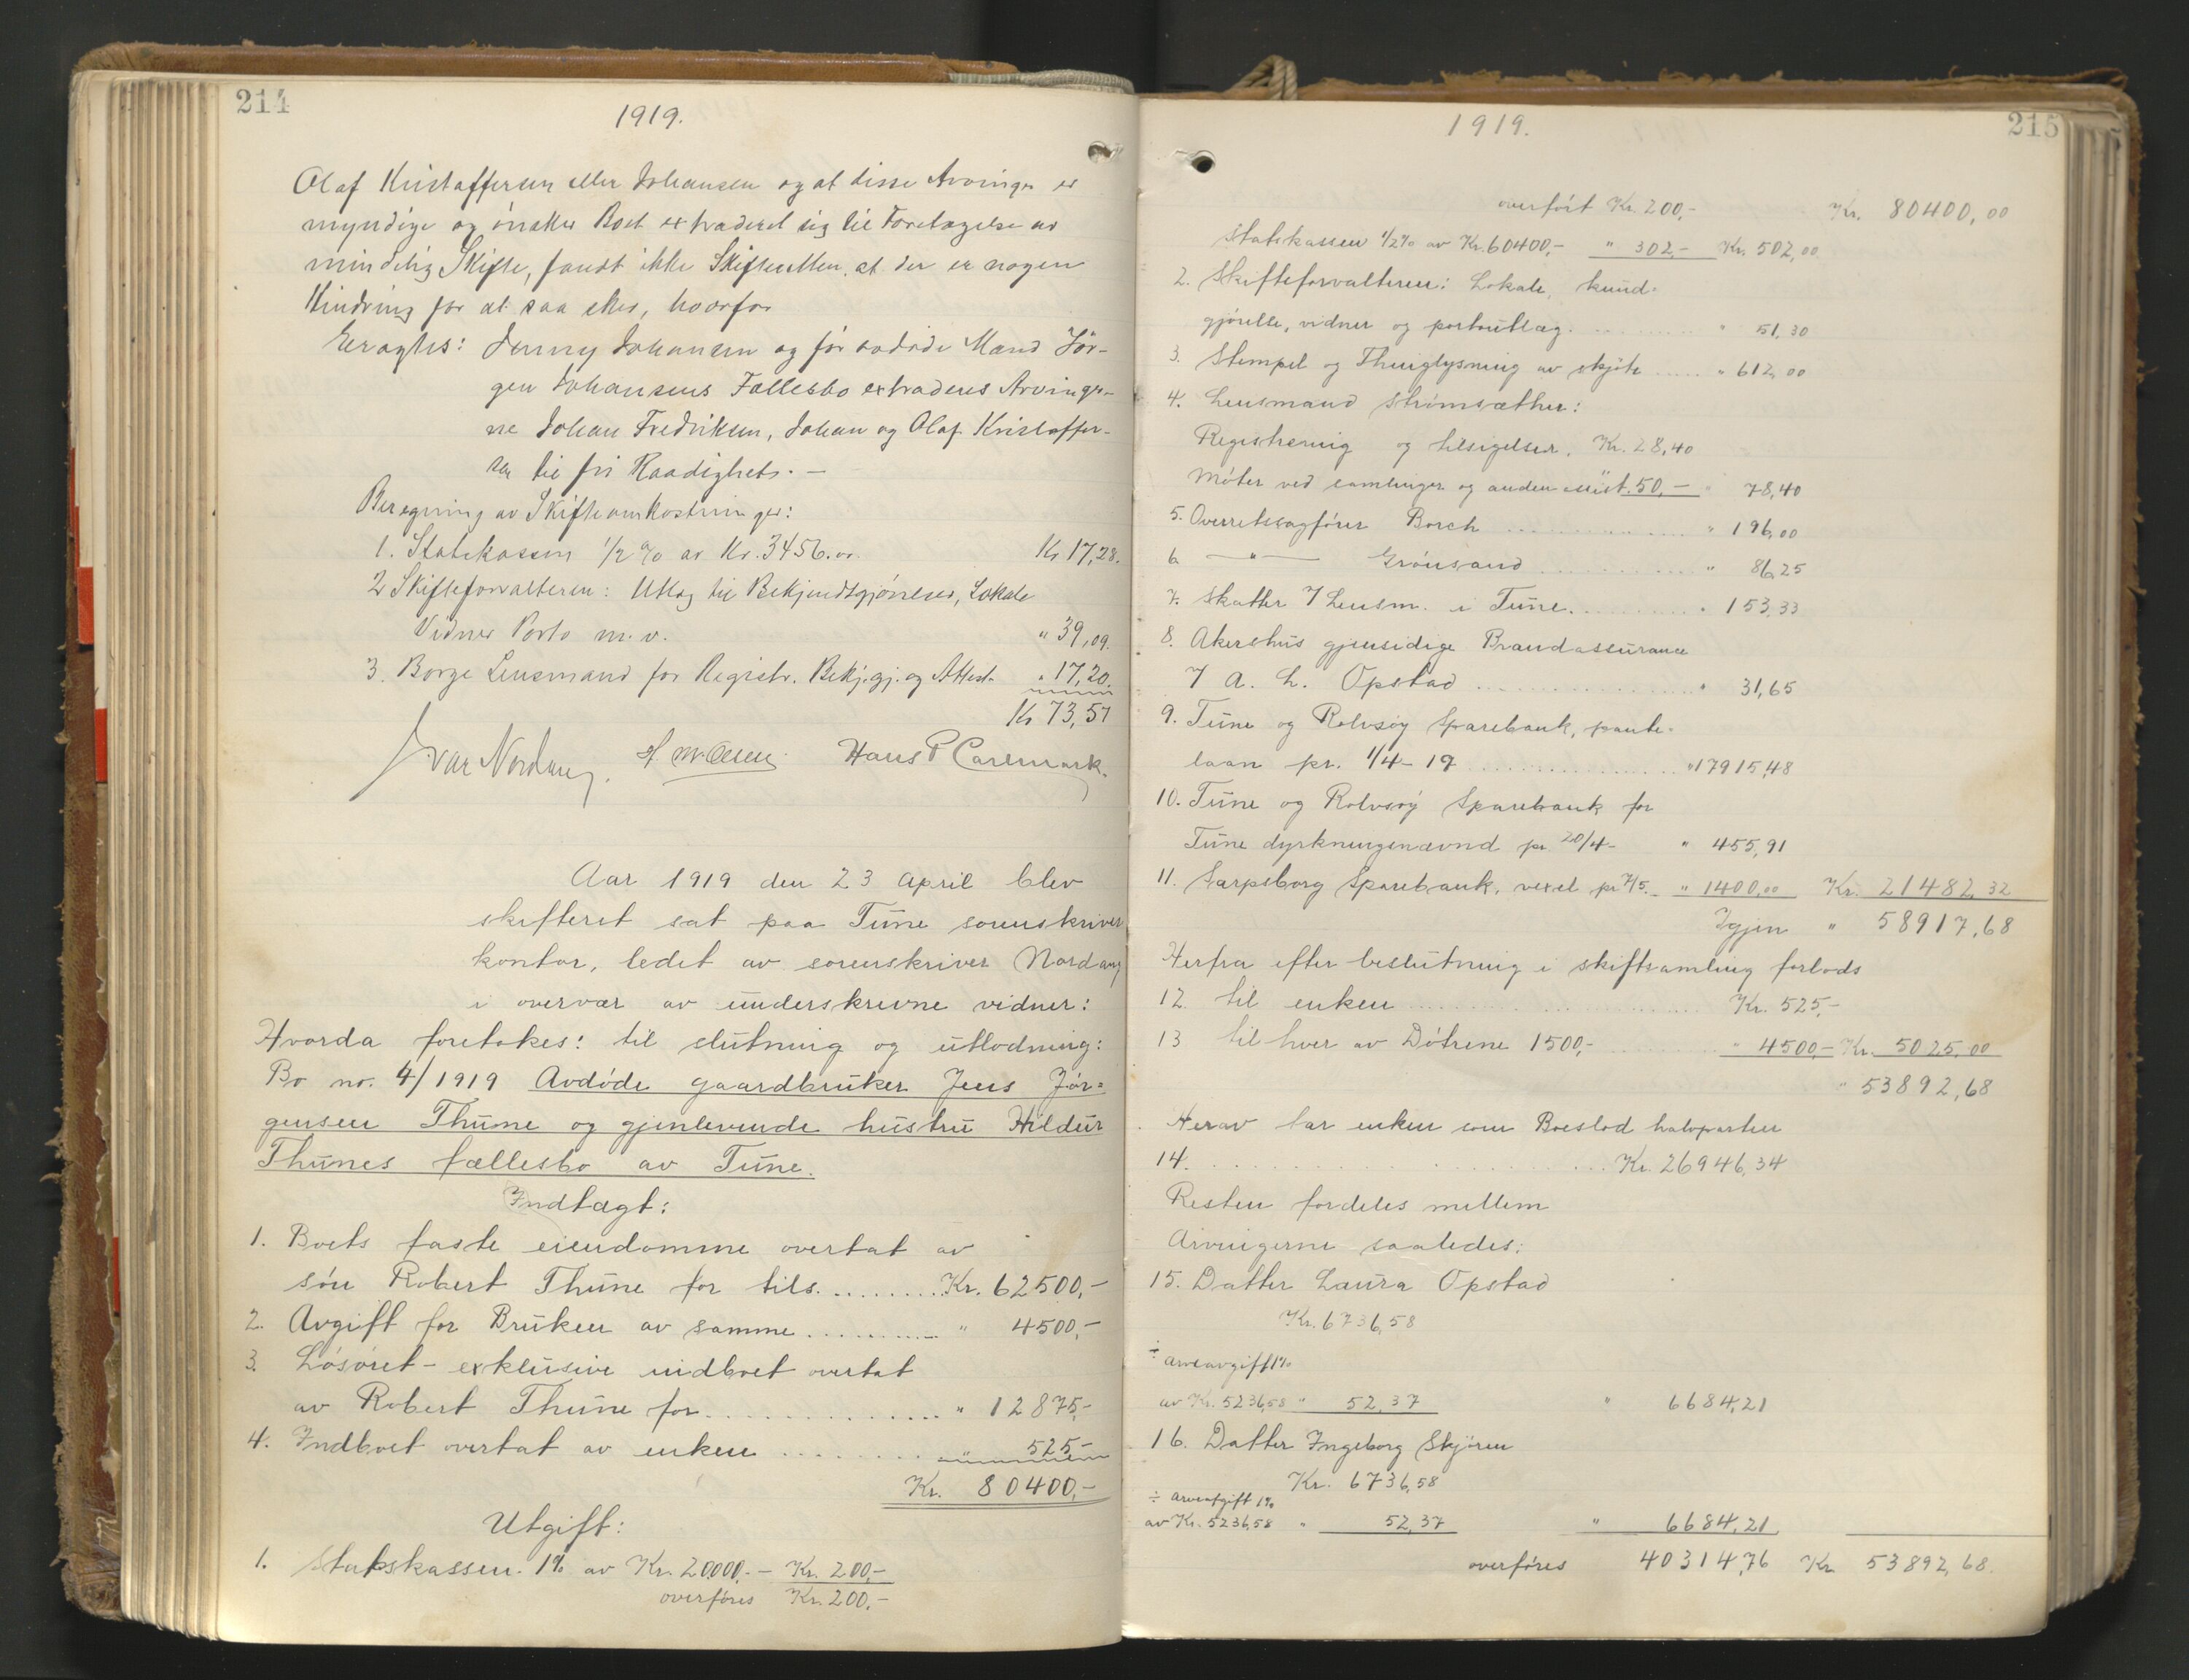 214
1919.
Olaf Kristoffersen eller Johansen og at disse Arvinger er
myndige og ønsker Boet extraderet sig til Foretagelse av
mindelig Skifte, fandt ikke Skifteretten, at der er nogen
Hindring for at saa sker, hvorfor
Eragtes: Jenny Johansen og før avdøde Mand Jør-
gen Johansens Fællesbo extraderes Arvinger-
ne Johan Fredriksen, Johan og Olaf Kristoffer-
sen til fri Raadighets. —
Beregning av Skifteomkostninger:
1. Statskassen 1/2 % av Kr. 3456.00 Kr 17,28.
2 Skifteforvalteren: Utlæg til Bekjendtgjørelser, Lokale
Vidner Porto m. v. " 39,09.
3. Borge Lensmand for Registr. Bekj.gj. og Attest. " 17,20.
Kr 73,57
Ivar Nordang. Hans P Carlmark.
Aar 1919 den 23 april blev
skifteret sat paa Tune sorenskriver
kontor, ledet av sorenskriver Nordang
i overvær av underskrevne vidner:
Hvorda foretokes: til slutning og utlodning:
Bo no. 4/1919 Avdøde gaardbruker Jens Jør-
gensen Thune og gjenlevende hustru Hildur
Thunes fællesbo av Tune.
Indtægt:
1. Boets faste eiendomme overtat av
søn Robert Thune for tils. ......... Kr. 62500,-
2. Avgift for Bruken av samme ........... " 4500,-
3. Løsøret - exklusive indboet overtat
av Robert Thune for .............. " 12875,-
4. Indboet overtat av enken ......... " 525,-
Kr. 80400,-
Utgift:
1. Statskassen. 1% av Kr. 20000,- — Kr. 200,-
overføres Kr. 200,-
215
1919.
overført Kr. 200,- Kr. 80400,00
Statskassen 1/2% av Kr. 60400,- " 302,- Kr. 502,00
2. Skifteforvalteren: Lokale, kund-
gjørelse, vidner og portoutlæg. ........... " 51,30
3. Stempel og Thinglysning av skjøte ..... " 612,00
4. Lensmand Strømsæther:
Registrering og tilsigelser. Kr. 28,40
Møter ved samlinger og anden assist. 50,- " 78,40
5. Overretssagfører Borch ................ " 196,00
6 — " — Grønsand ............. " 86,25
7. Skatter 7 Lensm. i Tune. ............ " 153,33
8. Akershus gjensidige Brandassurance
7 A. L. Opstad ................. " 31,65
9. Tune og Rolvsøy Sparebank, pante-
laan pr. 1/4 - 19 ................ " 17915,48
10. Tune og Rolvsøy Sparebank for
Tune dyrkningsnævnd pr 20/4 - " 455,91
11. Sarpsborg Sparebank, vexel pr 7/5. - " 1400,00 Kr. 21482,32
Igjen " 58917,68
Herfra efter beslutning i skiftsamling forlods
12 til enken ........................ Kr. 525,-
13 til hver av Døtrene 1500,- ........... " 4500,- Kr. 5025,00
" 53892,68
Herav tar enken som Boeslod halvparten
14. ........................ Kr. 26946,34
Resten fordeles mellem
Arvingerne saaledes:
15. Datter Laura Opstad
Kr. 6736,58
÷ arveavgift 1%
av Kr. 5236,58 " 52,37 " 6684,21
16. Datter Ingeborg Skjøren
Kr. 6736,58
÷ arveafgift 1%
av Kr. 5236,58 " 52,37 " 6684,21
overføres 40314,76 Kr 53892,68.